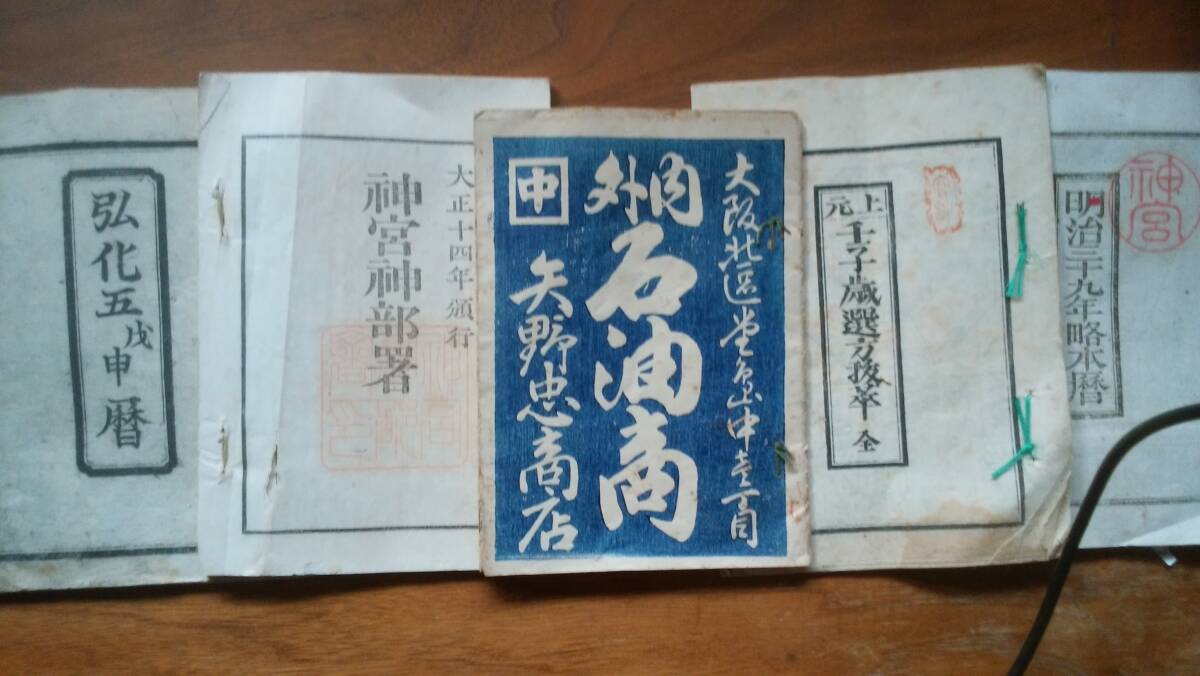 弘化五戊申暦
大正十四年頒行
神宮神部署
大阪北區堂島中壱丁目
内外
石油商
中
矢野忠商店
上元
壬子歳選方抜萃 全
神宮
明治 九年略本暦